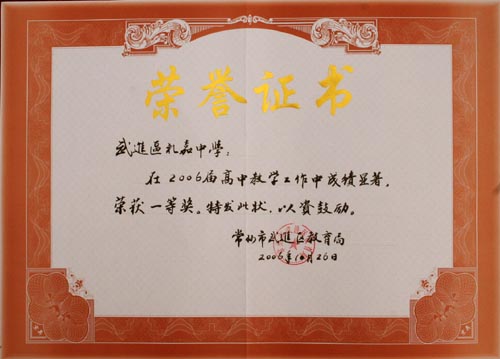 荣誉证书
武進區礼嘉中學：
在2006届高中教学工作中成绩显著，
荣获一等奖。特发此状，以资鼓励。
常州市武進区教育局
2006年10月26日